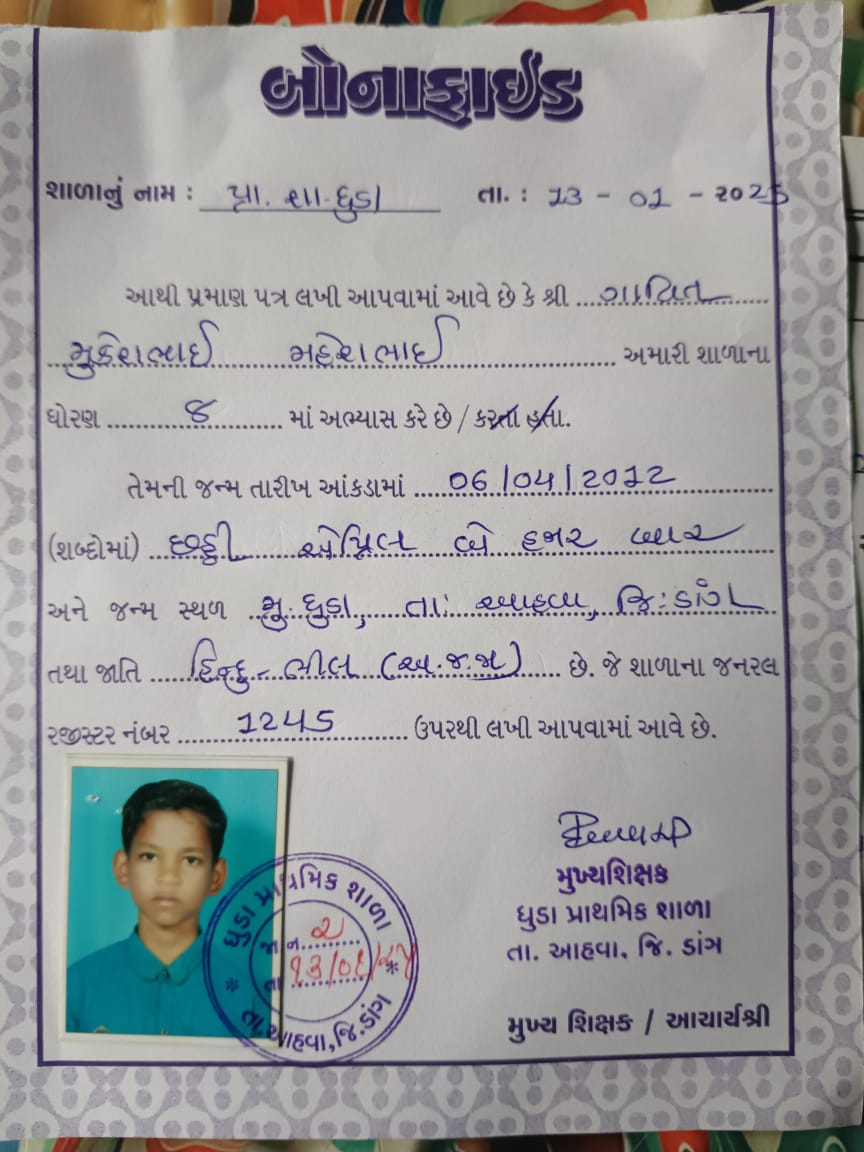 બોનાફાઈડ
શાળાનું નામ : પ્રા. શા. ધુડા તા. : 13 - 01 - ૨૦25
આથી પ્રમાણ પત્ર લખી આપવામાં આવે છે કે શ્રી ગાવિત
મુકેશભાઈ મહેશભાઈ અમારી શાળાના
ધોરણ ૪ માં અભ્યાસ કરે છે / કરતા હતા.
તેમની જન્મ તારીખ આંકડામાં 06/04/2012
(શબ્દોમાં) છઠ્ઠી એપ્રિલ બે હજાર બાર
અને જન્મ સ્થળ મુ. ધુડા, તા: આહવા, જિ: ડાંગ
તથા જાતિ હિન્દુ - ભીલ (અ.જ.જા) છે. જે શાળાના જનરલ
રજીસ્ટર નંબર 1245 ઉપરથી લખી આપવામાં આવે છે.
મુખ્યશિક્ષક
ધુડા પ્રાથમિક શાળા
તા. આહવા. જિ. ડાંગ
મુખ્ય શિક્ષક / આચાર્યશ્રી
ધુડા પ્રાથમિક શાળા
જા.ન. ૨
તા. ૧૩/૦૧/૨૫
તા.આહવા,જિ.ડાંગ